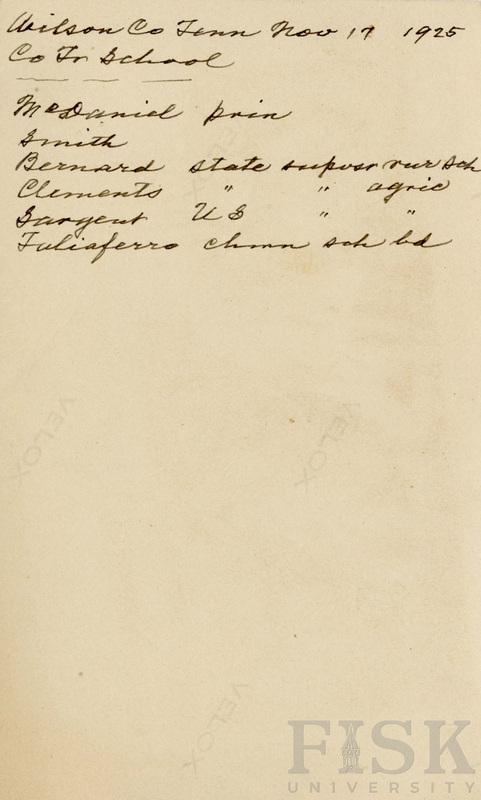 Wilson Co Tenn Nov 17 1925
Co Tr School
McDaniel prin
Smith
Bernard state supvsr rur sch
Clements " " agric
Sargent U S " "
Taliaferro chmn sch bd
VELOX
VELOX
VELOX
VELOX
FISK
UNIVERSITY